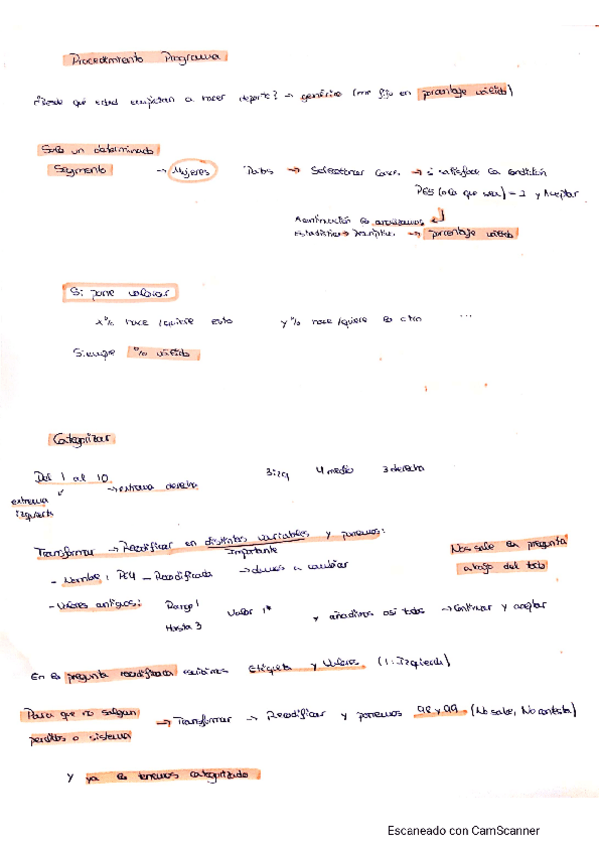 Procedimiento Programa
¿Desde que edad empiezan a hacer deporte? → genérico (me fijo en porcentaje válido)
Solo un determinado
Segmento → Mujeres Datos → Seleccionar casos → si satisface la condición
(o la que sea) = 2 y Aceptar
A continuación
Estadísticos → → porcentaje válido
Si pone valorar
x% hace /quiere esto y% hace /quiere la otra ...
Siempre % válido
Categorizar
Del 1 al 10 → extrema derecha 3 izq 4 medio 3 derecha
extrema
izquierda
Transformar → Recodificar en distintas variables, y ponemos:
Importante
Nos sale la pregunta
abajo del todo
- Nombre: P64 - Recodificada → damos a cambiar
- Valores antiguos: Rango 1 Valor 1" y añadimos así todos → Continuar y aceptar
Hasta 3
En la pregunta recodificada escribimos Etiqueta y Valores. (1: Izquierda)
Para que no salgan
perdidos o sistema → Transformar → Recodificar y ponemos 98 y 99 (No sabe, No contesta)
y ya lo tenemos categorizado
Escaneado con CamScanner